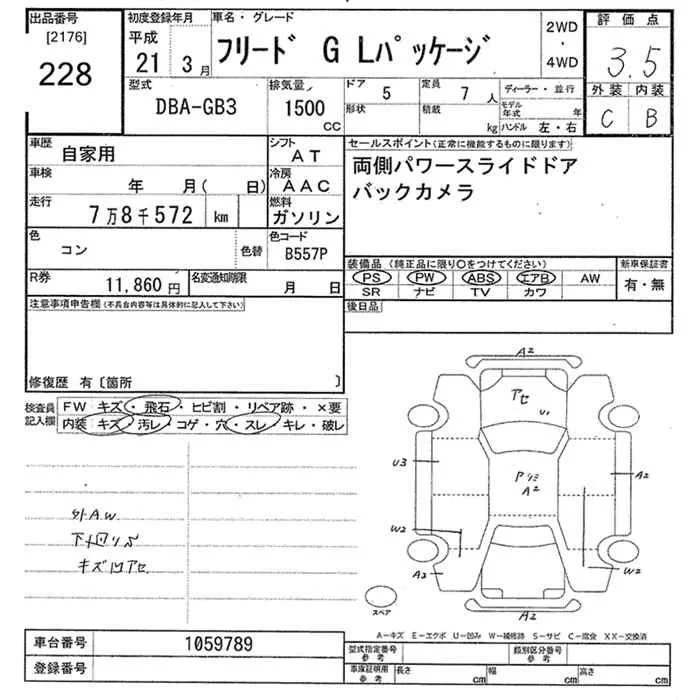 出品番号
[2176]
228
初度登録年月
平成
21 3月
車名・グレード
フリード G Lパッケージ
2WD
・
4WD
評価点
3.5
外装 内装
C B
型式
DBA-GB3
排気量
1500
CC
ドア
5
定員
7 人
形状
積載
kg
ディーラー・並行
モデル年式 年
ハンドル 左・右
車歴
自家用
シフト
AT
車検
年 月( 日)
冷房
AAC
走行
7万8千572 km
燃料
ガソリン
色
コン
色替
色コード
B557P
R券
11,860円
名変通知期限
月 日
セールスポイント(正常に機能するものに限ります)
両側パワースライドドア
バックカメラ
装備品(純正品に限り○をつけてください)
PS PW ABS エアB AW
SR ナビ TV カワ
新車保証書
有・無
後日品
注意事項申告欄(不具合内容等は具体的に記入して下さい)
修復歴 有〔箇所 〕
検査員
記入欄
FW キズ・飛石・ヒビ割・リペア跡・×要
内装 キズ・汚レ・コゲ・穴・スレ・キレ・破レ
外A.W.
キズ凹アセ
A2
アセ
U1
U3
A2
A2
W2
W2
A2
A2
スペア
A-キズ E-エクボ U-凹み W-補修跡 S-サビ C-腐食 XX-交換済
車台番号
1059789
登録番号
型式指定番号
参考
類別区分番号
参考
車庫証明用
参考
長さ cm
幅 cm
高さ cm